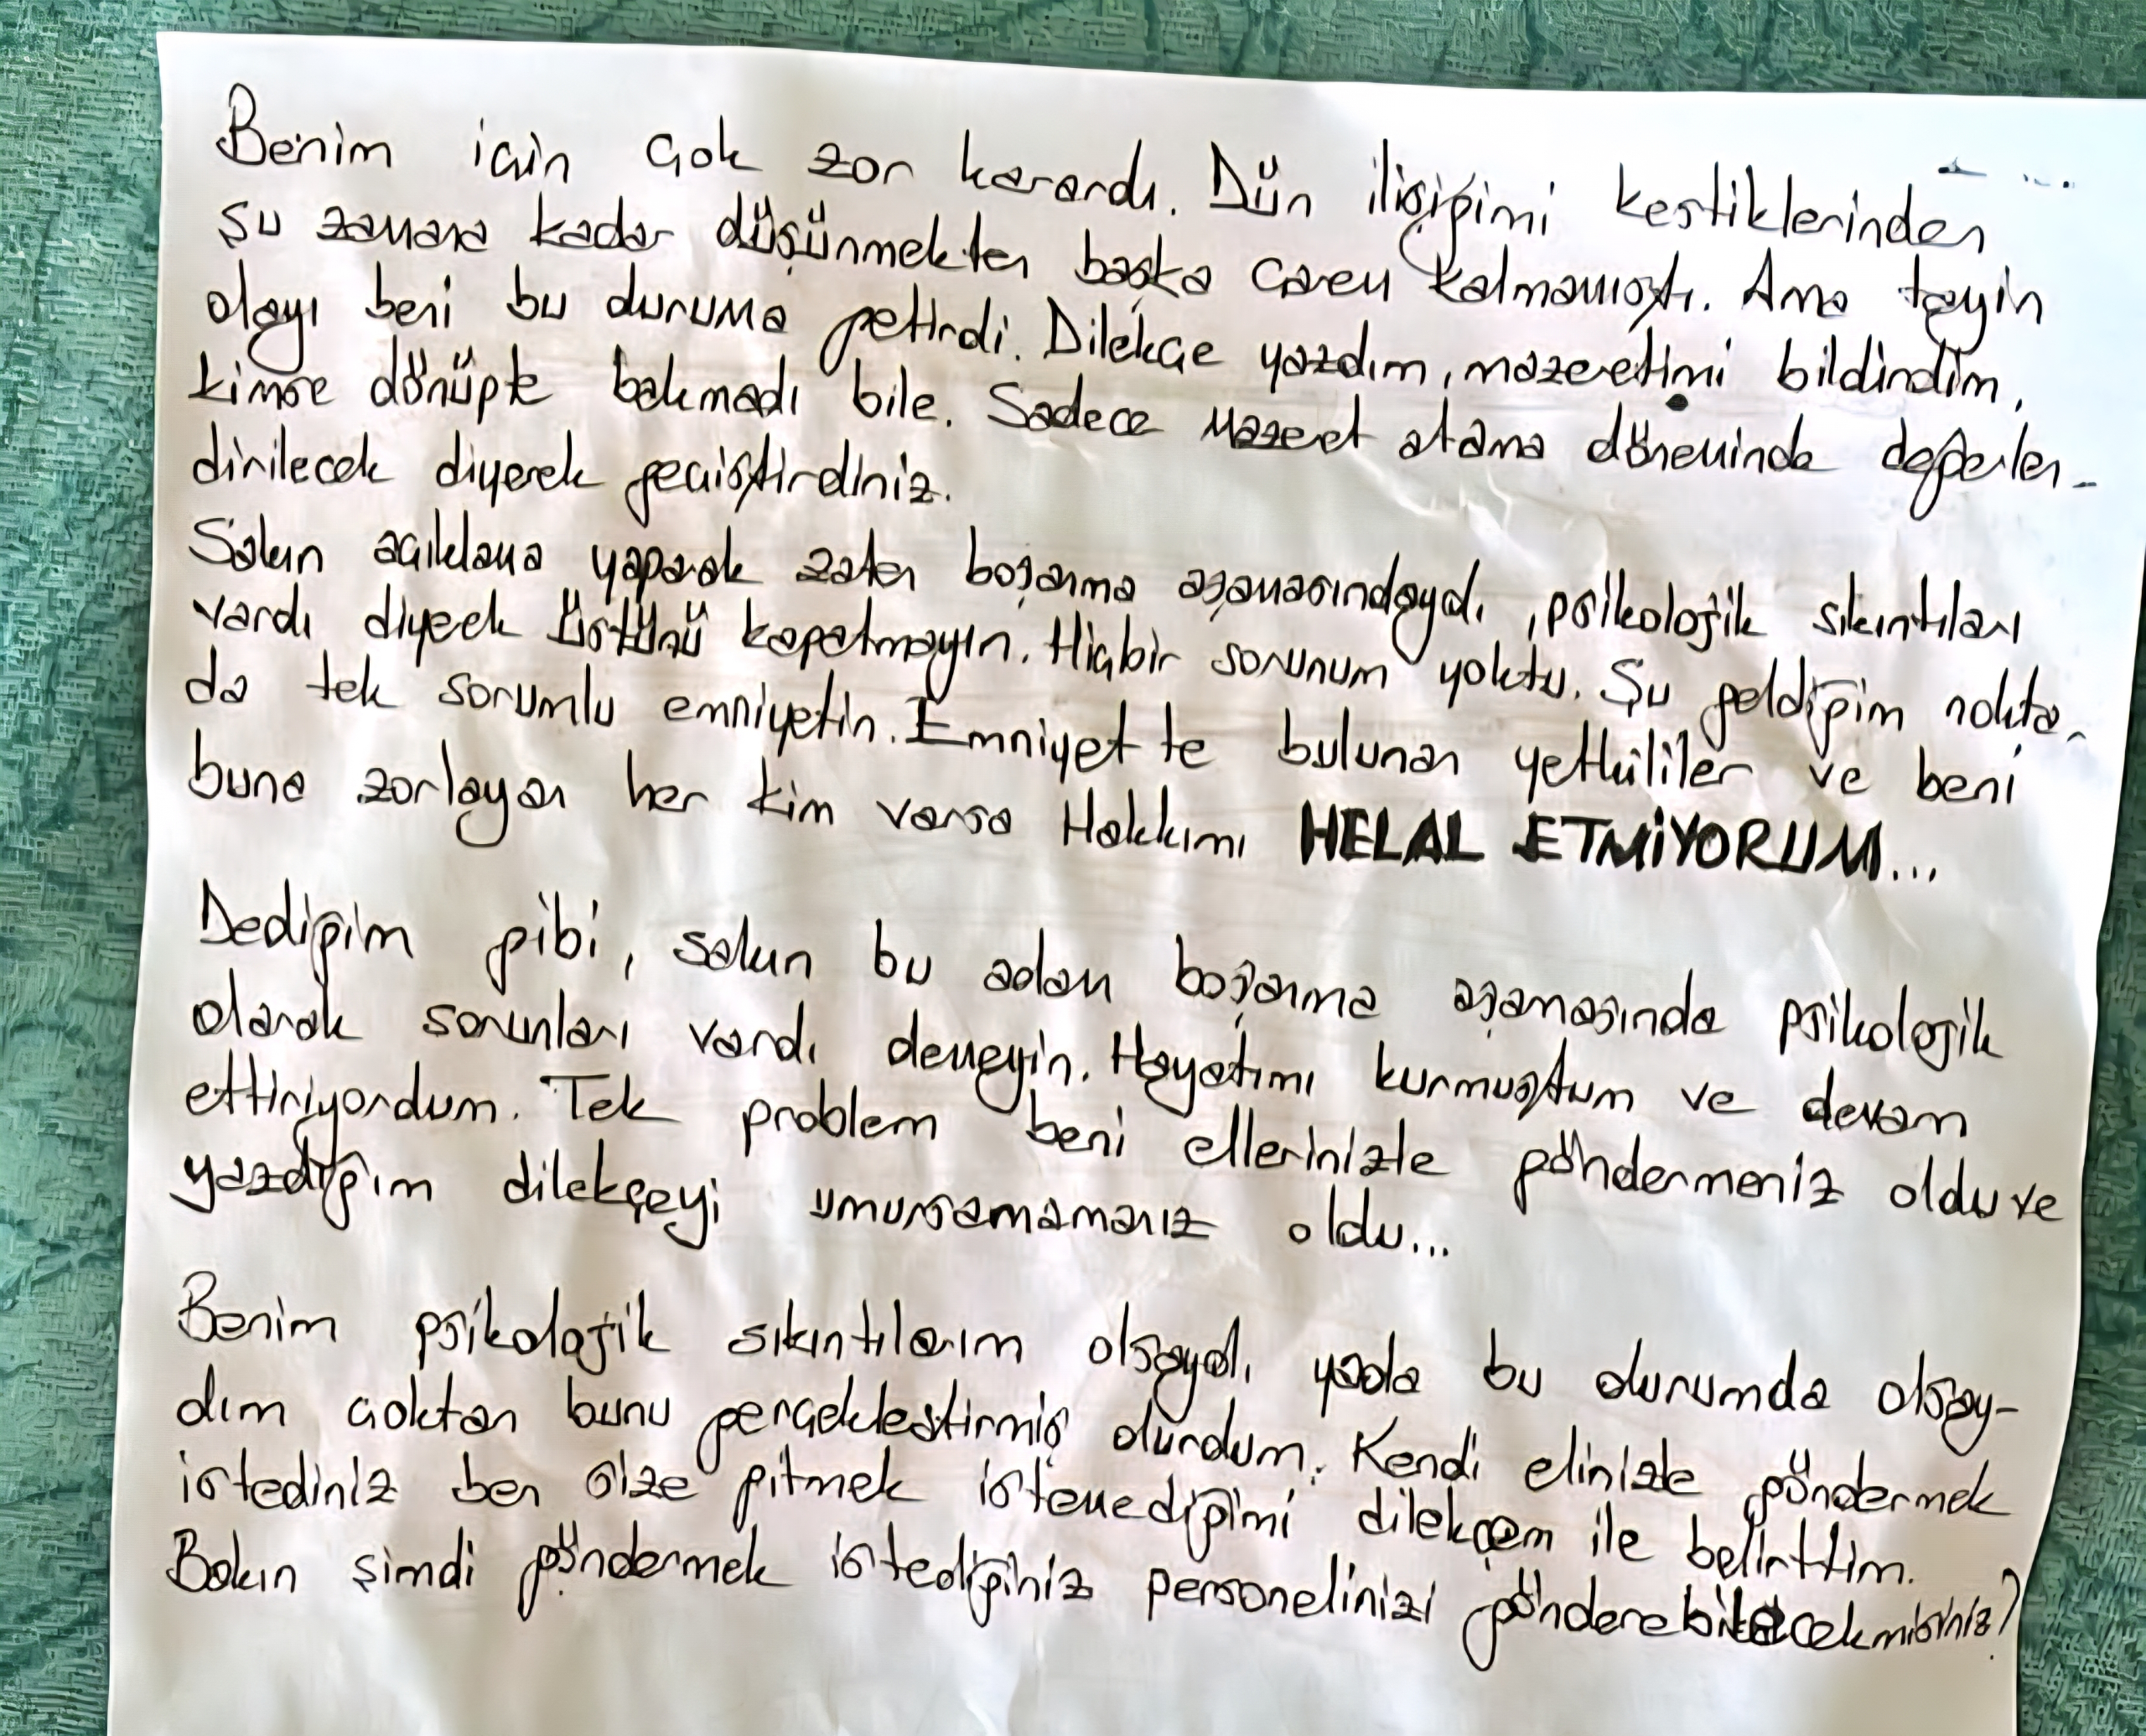 Benim için çok zor karardı. Dün ilişiğimi kestiklerinden
şu zamana kadar düşünmekten başka çarem kalmamıştı. Ama tayin
olayı beni bu duruma getirdi. Dilekçe yazdım, mazeretimi bildirdim,
kimse dönüpte bakmadı bile. Sadece Mazeret atama döneminde değerlen-
dirilecek diyerek geçiştirdiniz.
Sakın açıklama yaparak zaten boşanma aşamasındaydı, psikolojik sıkıntıları
vardı diyerek üstünü kapatmayın. Hiçbir sorunum yoktu. Şu geldiğim nokta-
da tek sorumlu emniyetin. Emniyette bulunan yetkililer ve beni
buna zorlayan her kim varsa Hakkımı HELAL ETMİYORUM...
Dediğim gibi, sakın bu adam boşanma aşamasında psikolojik
olarak sorunları vardı demeyin. Hayatımı kurmuştum ve devam
ettiriyordum. Tek problem beni ellerinizle göndermeniz oldu ve
yazdığım dilekçeyi umursamamanız oldu...
Benim psikolojik sıkıntılarım olsaydı yada bu durumda olsay-
dım çoktan bunu gerçekleştirmiş olurdum. Kendi elinizle göndermek
istediniz ben size gitmek istemediğimi dilekçem ile belirttim.
Bakın şimdi göndermek istediğiniz personelinizi gönderebilecekmisiniz?